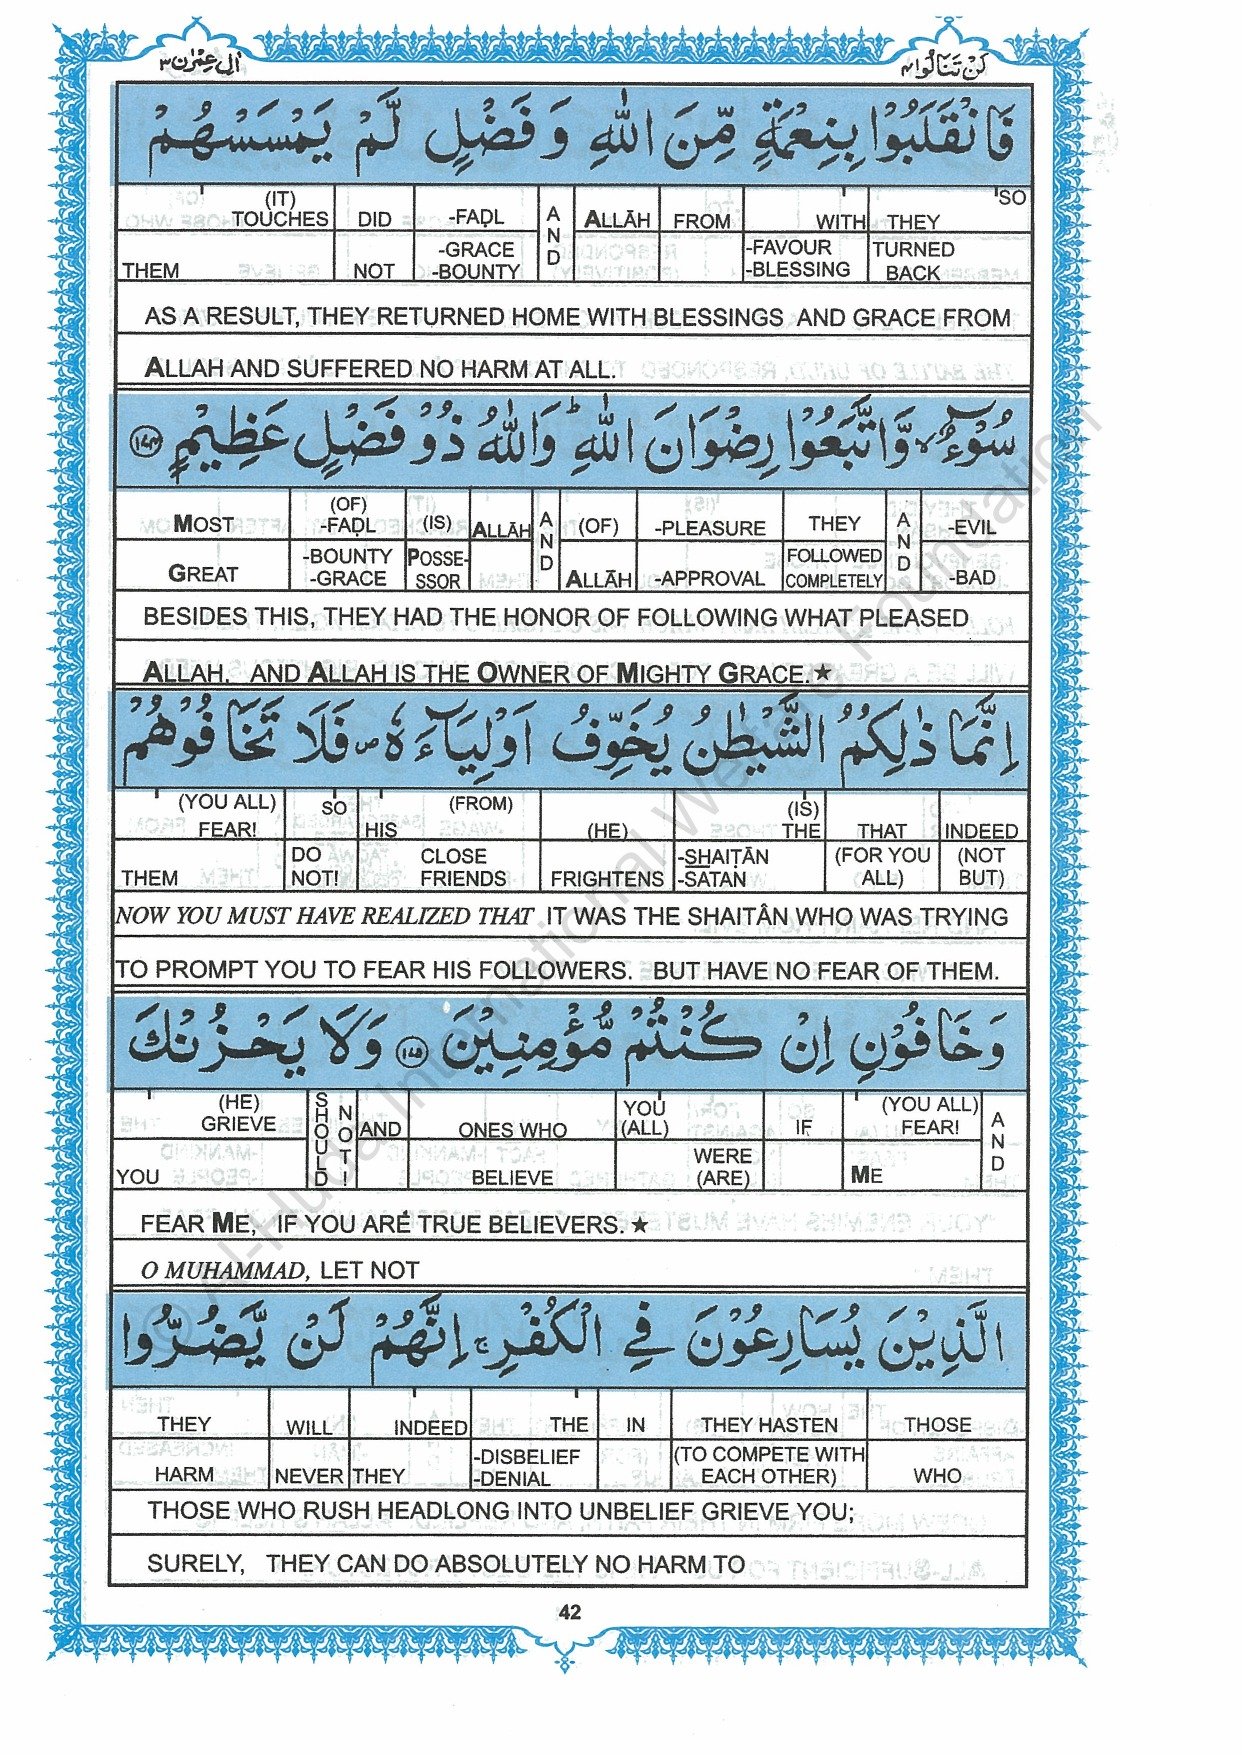 اٰلِ عِمْرٰن ۳ لَنْ تَنَالُوا ۴
فَانْقَلَبُوْا بِنِعْمَةٍ مِّنَ اللّٰهِ وَ فَضْلٍ لَّمْ يَمْسَسْهُمْ
(IT) TOUCHES DID -FAḌL AND ALLĀH FROM WITH THEY SO
THEM NOT -GRACE -BOUNTY -FAVOUR -BLESSING TURNED BACK
AS A RESULT, THEY RETURNED HOME WITH BLESSINGS AND GRACE FROM
ALLAH AND SUFFERED NO HARM AT ALL.
سُوْٓءٌ ۙ وَّ اتَّبَعُوْا رِضْوَانَ اللّٰهِ ؕ وَاللّٰهُ ذُوْ فَضْلٍ عَظِيْمٍ ۱۷۴
MOST (OF) -FAḌL (IS) ALLĀH AND (OF) -PLEASURE THEY AND -EVIL
GREAT -BOUNTY -GRACE POSSE-SSOR ALLĀH -APPROVAL FOLLOWED COMPLETELY -BAD
BESIDES THIS, THEY HAD THE HONOR OF FOLLOWING WHAT PLEASED
ALLAH. AND ALLAH IS THE OWNER OF MIGHTY GRACE.★
اِنَّمَا ذٰلِكُمُ الشَّيْطٰنُ يُخَوِّفُ اَوْلِيَآءَهٗ ۪ فَلَا تَخَافُوْهُمْ
(YOU ALL) FEAR! SO HIS (FROM) (HE) (IS) THE THAT INDEED
THEM DO NOT! CLOSE FRIENDS FRIGHTENS -SHAIṬĀN -SATAN (FOR YOU ALL) (NOT BUT)
NOW YOU MUST HAVE REALIZED THAT IT WAS THE SHAITÂN WHO WAS TRYING
TO PROMPT YOU TO FEAR HIS FOLLOWERS. BUT HAVE NO FEAR OF THEM.
وَ خَافُوْنِ اِنْ كُنْتُمْ مُّؤْمِنِيْنَ ۱۷۵ وَلَا يَحْزُنْكَ
(HE) GRIEVE SHOULD NOT! AND ONES WHO YOU (ALL) IF (YOU ALL) FEAR! AND
YOU BELIEVE WERE (ARE) ME
FEAR ME, IF YOU ARE TRUE BELIEVERS.★
O MUHAMMAD, LET NOT
الَّذِيْنَ يُسَارِعُوْنَ فِي الْكُفْرِ ۚ اِنَّهُمْ لَنْ يَّضُرُّوا
THEY WILL INDEED THE IN THEY HASTEN THOSE
HARM NEVER THEY -DISBELIEF -DENIAL (TO COMPETE WITH EACH OTHER) WHO
THOSE WHO RUSH HEADLONG INTO UNBELIEF GRIEVE YOU;
SURELY, THEY CAN DO ABSOLUTELY NO HARM TO
42
© Al-Huda International Welfare Foundation